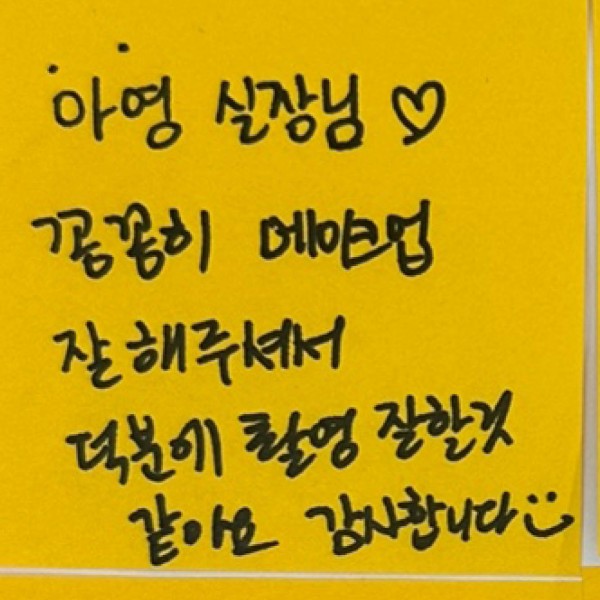 아영 실장님 ♡
꼼꼼히 메이크업
잘해주셔서
덕분에 촬영 잘할것
같아요 감사합니다